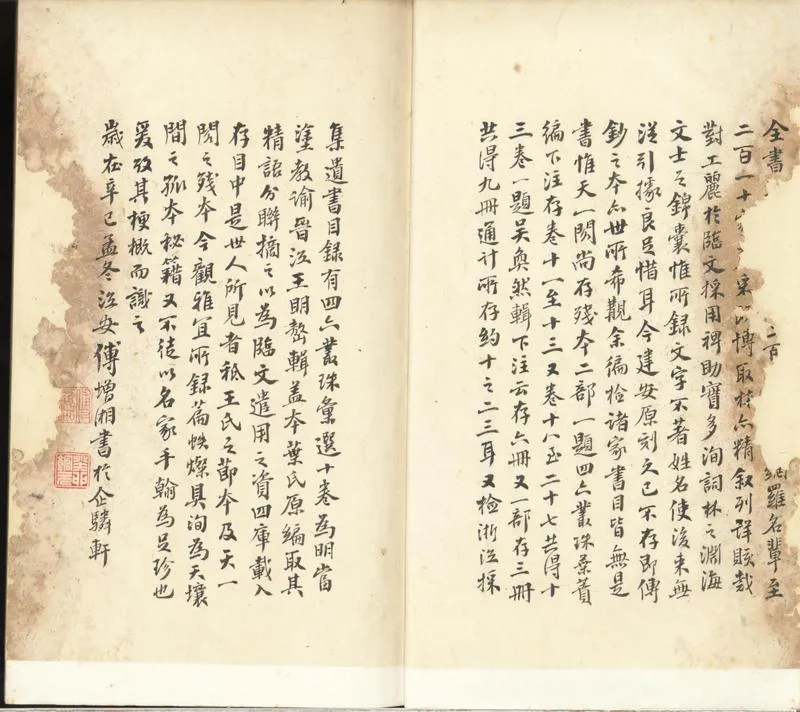 全書 二百 羅名輩至
二百一十 博取 精叙列詳賅哉
對工麗於臨文採用裨助實多洵詞林之淵海
文士之錦囊惟所錄文字不著姓名使後来無
從引據良足惜耳今建安原刻久已不存即傳
鈔之本亦世所希觀余徧檢諸家書目皆無是
書惟天一閣尚存殘本二部一題四六叢珠葉蕡
編下注存卷十一至十三又卷十八至二十七共得十
三卷一題吳奐然輯下注云存六冊又一部存三冊
共得九冊通計所存約十之二三耳又檢浙江採
集遺書目録有四六叢珠彙選十卷為明當
塗教諭晉江王明嶅輯蓋本葉氏原編取其
精語分聯摘之以為臨文遣用之資四庫載入
存目中是世人所見者祇王氏之節本及天一
閣之殘本今觀雅宜所録篇帙燦具洵為天壤
間之孤本秘籍又不徒以名家手翰為足珍也
爰攷其梗概而識之
歲在辛巳孟冬江安傅增湘書於企驎軒